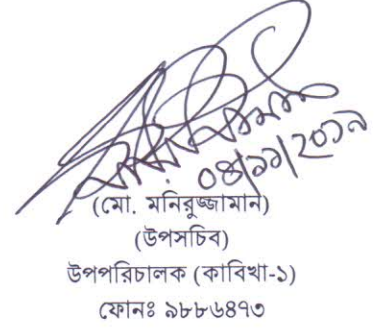 ০৪/১১/২০১৯
(মো. মনিরুজ্জামান)
(উপসচিব)
উপপরিচালক (কাবিখা-১)
ফোনঃ ৯৮৮৬৪৭৩